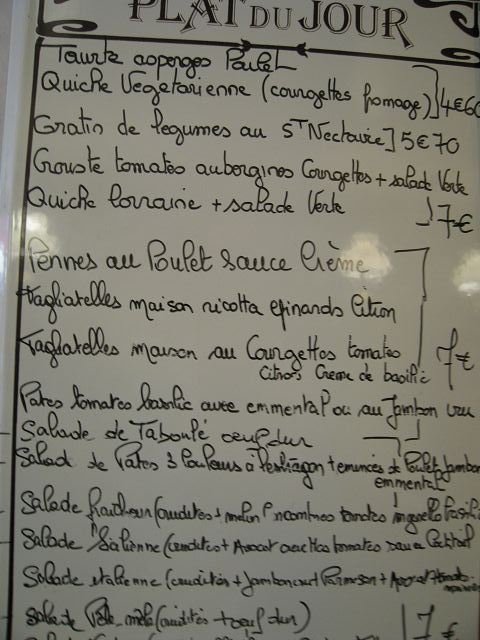 PLAT DU JOUR
Tourte asperges Poulet
Quiche Vegetarienne (courgettes fromage)] 4€60
Gratin de legumes au ST Nectaire] 5€70
Crouste tomates aubergines Courgettes + salade Verte
Quiche lorraine + salade Verte 7€
Pennes au Poulet sauce Crème
Tagliatelles maison ricotta epinards Citron
Tagliatelles maison au Courgettes tomates 7€
Citrons Creme de basilic
Pates tomates basilic avec emmental ou au Jambon cru
Salade de Taboulé oeuf dur
Salade de Pates 3 Couleurs a l'estragon + emincés de Poulet Jambon
emmental
Salade fraicheur (crudites + melon concombres tomates
Salade Italienne (crudites + Avocat tomates sauce Cocktail
Salade italienne (crudités + Jambon cru Parmesan + Avocat + tomate
Salade Pêle-mêle (crudités + oeuf dur) 7€